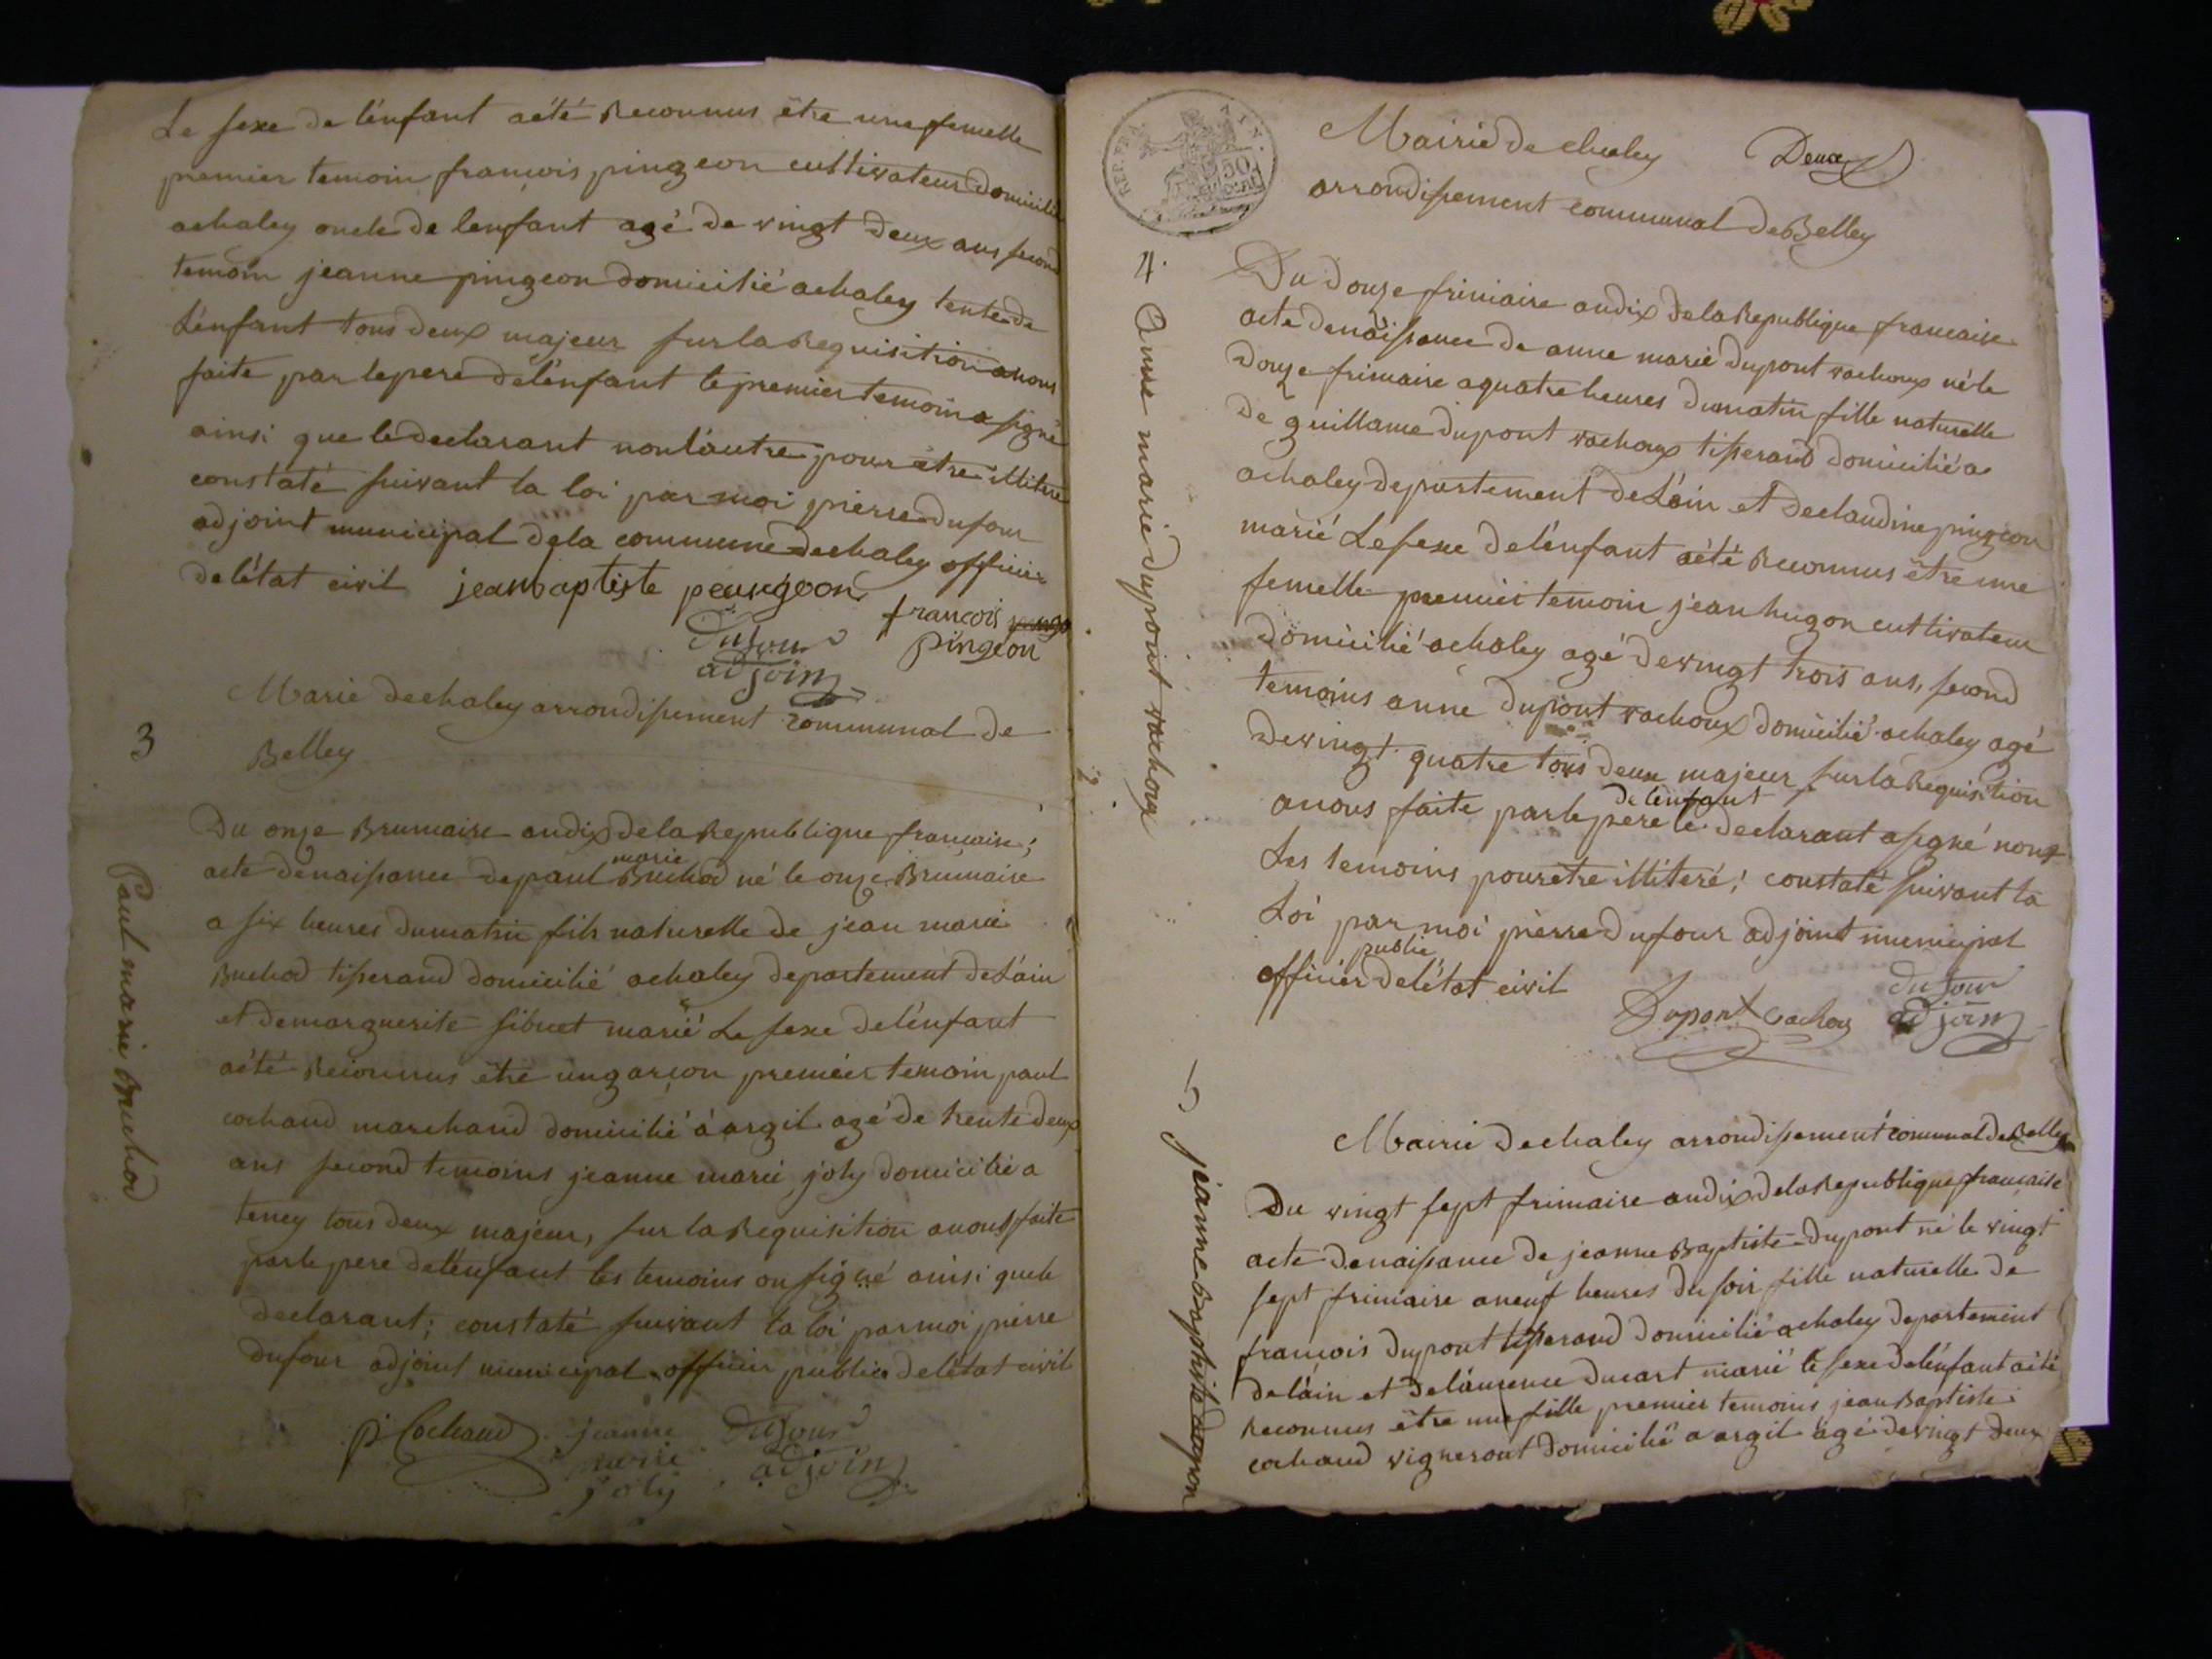 Le sexe de lénfant aété Reconnus être une femelle
premier temoin francois pingeon cultivateur domicilié
achaley oncle de lenfant agé de vingt deux ans second
temoin jeanne pingeon domicilié achaley tente de
Lénfant tous deux majeur sur la Requisition anous
faite par lepere delénfant le premier temoin a signé
ainsi que ledeclarant non láutre pour être illiteré
constaté suivant la loi par moi pierre dufour
adjoint municipal dela commune dechaley officier
delétat civil jeanbaptiste peungeon
francois
pingéon
Dufour
adjoin
3
Marie dechaley arrondissement communal de
Belley
Paul marie Buchod
Du onze Brumaire andix dela Republique francaise;
acte denaissance depaul marie Buchod né le onze Brumaire
a six heures dumatin fils naturelle de jean marie
Buchod tisserand domicilié achaley departement deLáin
et demarguerite sibuet marié Le sexe delénfant
aété Reconnus être ungarcon premier temoin paul
cochand marchand domicilié á argil agé de trente deux
ans second temoins jeanne marie joly domicilié a
teney tous deux majeur, sur la Requisition anous faite
parle pere delénfant les temoins on signé ainsi quele
declarant; constaté suivant la loi parmoi pierre
dufour adjoint municipal officier public delétat civil
p Cochand
jeanne
marie
joly
Dufour
adjoin
REP. FRA.
50
cent
Mairie de chaley
Deux
arrondissement communal deBelley
4.
Anne marie dupont vachoux
Du douze frimaire andix dela Republique francaise
acte denaissance de anne marie dupont vachoux néle
douze frimaire aquatre heures dumatin fille naturelle
de guillame dupont vachoux tisserand domicilié a
achaley departement deLáin et declaudine pingeon
marié Lesexe delénfant aété Reconnus être une
femelle premier temoin jean hugon cultivateur
domicilié achaley agé devingt trois ans, second
temoins anne dupont vachoux domicilié achaley agé
devingt quatre tous deux majeur sur la Requisition
anous faite parle pere delenfant le declarant asigné non
Les temoins pourêtre illiteré; constaté suivant la
Loi par moi pierre dufour adjoint municipal
officier public delétat civil
Dupont Vachoux
Dufour
adjoin
2
5
jeanne Baptiste dupon
Mairie dechaley arrondissement comunal de Belley
Du vingt sept frimaire andix dela Republique francaise
acte denaissance de jeanne Baptiste dupont né le vingt
sept frimaire aneuf heures du soir fille naturelle de
francois dupont tisserand domicilié achaley departement
deláin et delaurence ducart marié le sexe delénfant aété
Reconnus être une fille premier temoins jean Baptiste
cochand vigneront domicilié a argil agé devingt deux